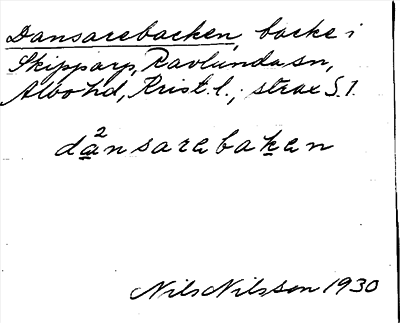 Dansarebacken, backe i
Skipparp, Ravlunda sn,
Albo hd, Krist. l.; strax S. I.
da²nsarebaken
Nils Nilsson 1930